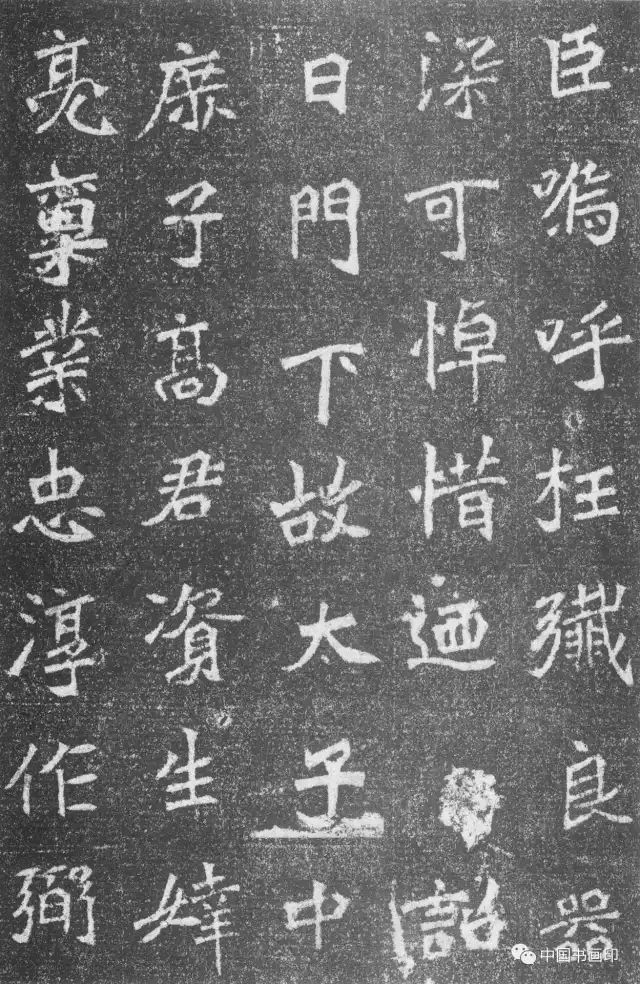 臣嗚呼枉殲良器
深可悼惜迺詔
曰門下故太子中
庶子高君資生媁
亮稟業忠淳作弼
中国书画印